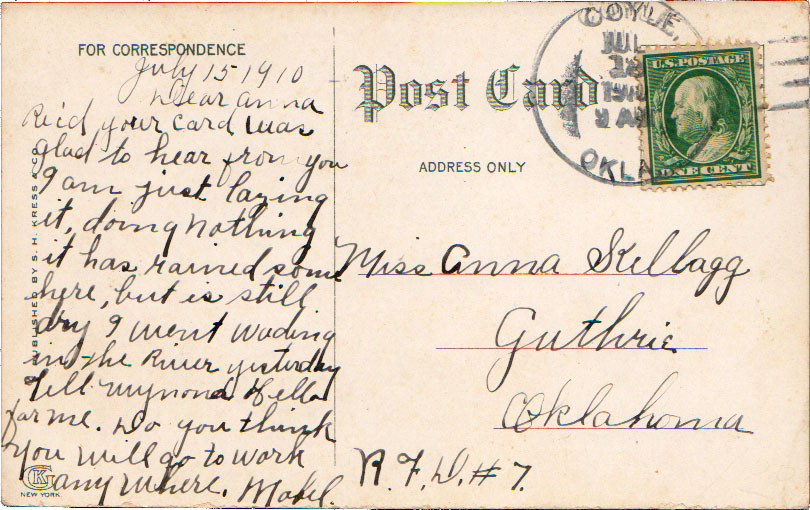 FOR CORRESPONDENCE
July 15 1910
Dear Anna
Rec'd your card was
glad to hear from you
I am just lazing
it, doing nothing
it has rained some
here, but is still
dry I went wading
in the River yesterday
Tell Hello
for me. Do you think
you will go to work
any where. Mabel.
PUBLISHED BY S. H. KRESS & CO.
NEW YORK
Post Card
ADDRESS ONLY
COYLE,
JUL
1910
OKLA
U.S. POSTAGE
ONE CENT
Miss Anna Kellagg
Guthrie
Oklahoma
R. F. D. # 7.